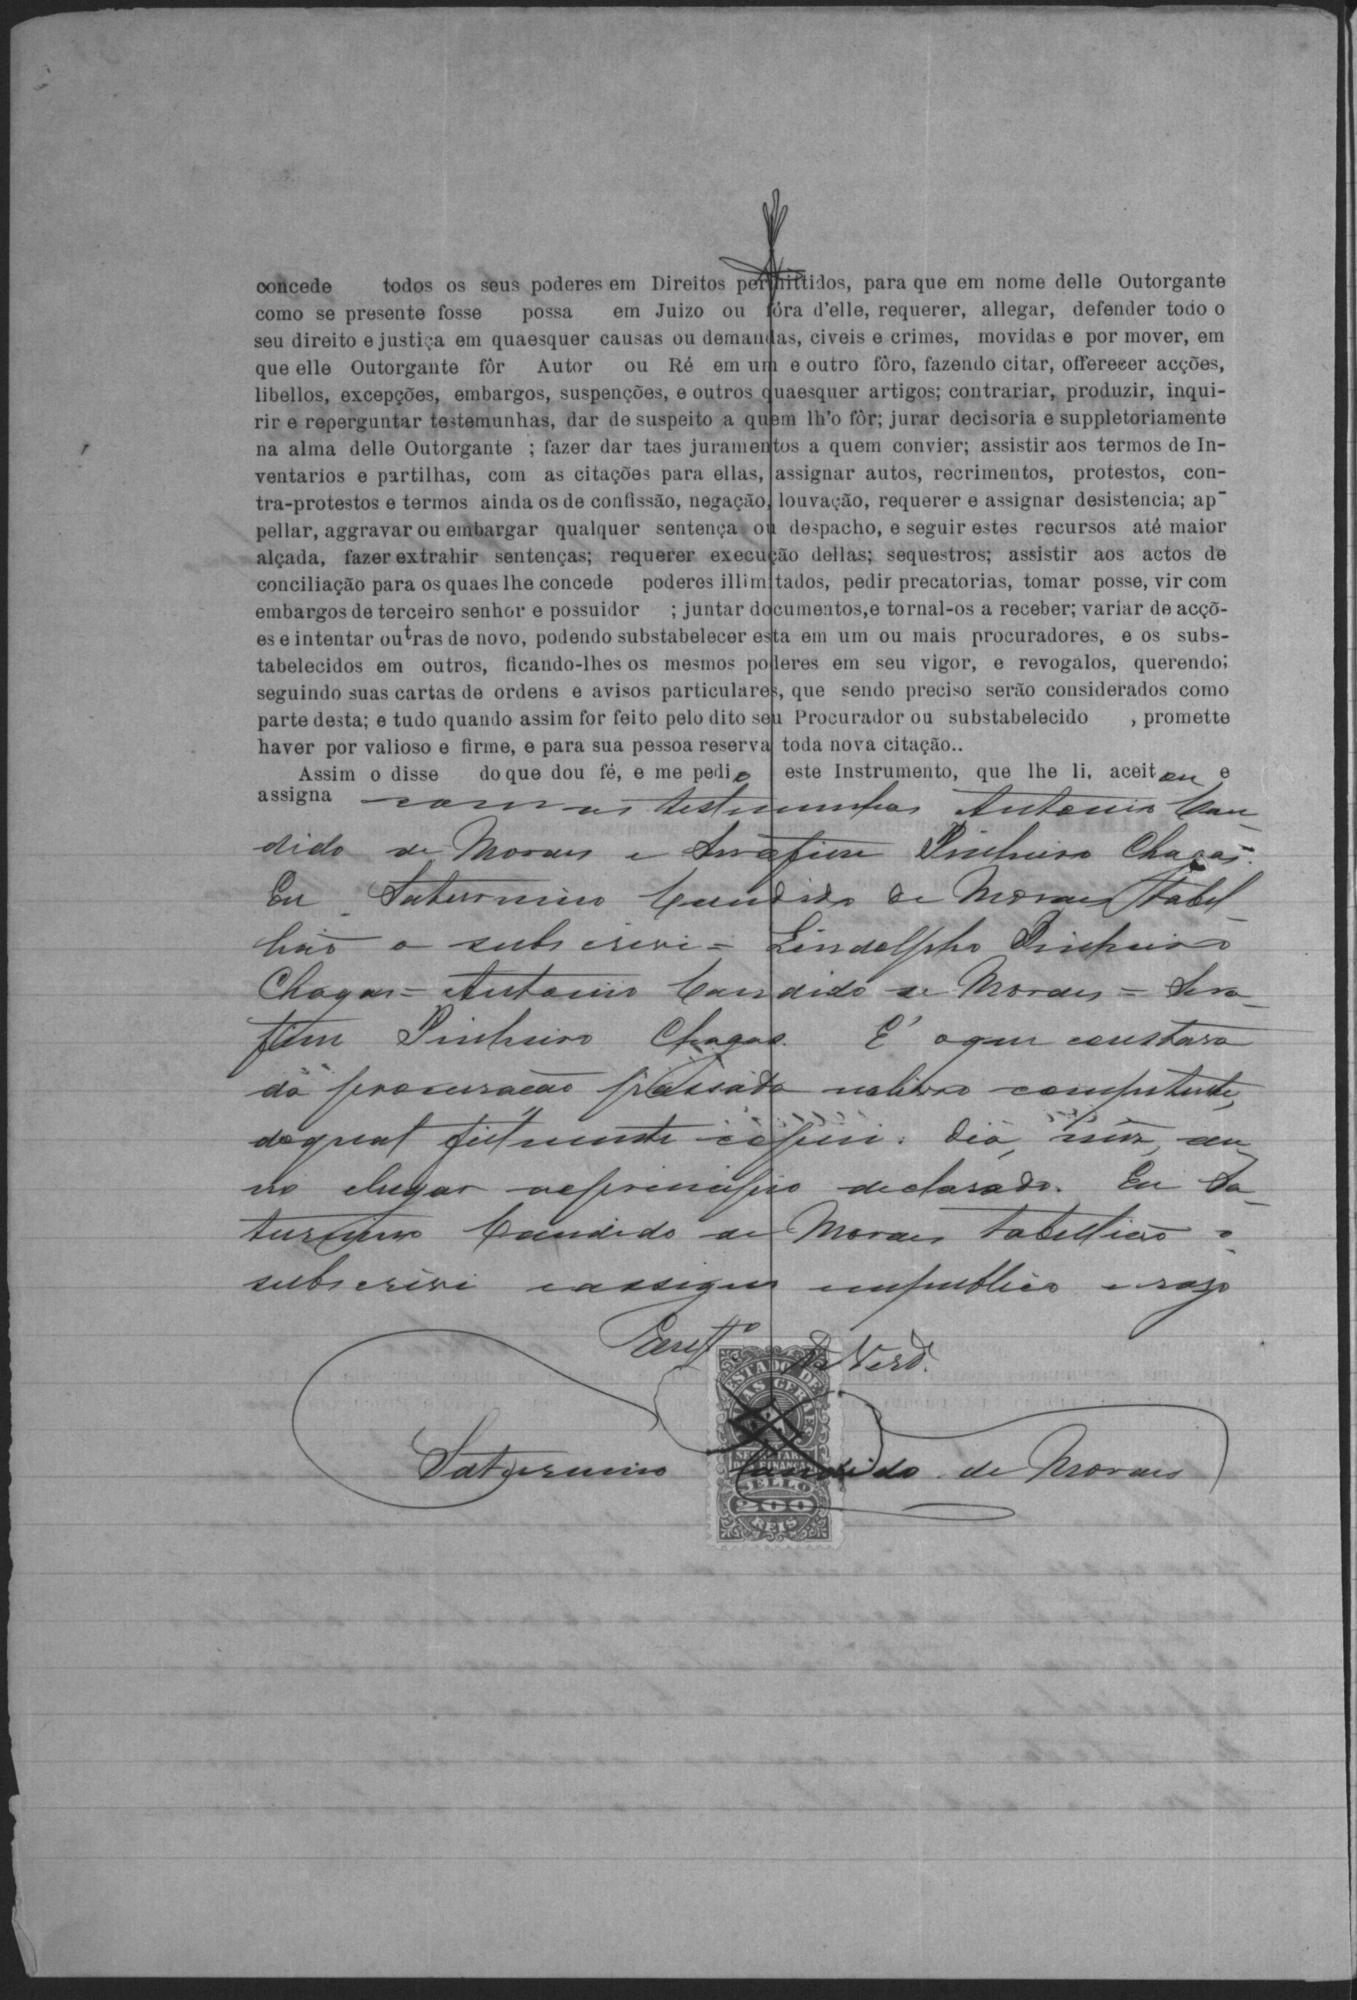 concede todos os seus poderes em Direitos permittidos, para que em nome delle Outorgante
como se presente fosse possa em Juizo ou fóra d'elle, requerer, allegar, defender todo o
seu direito e justiça em quaesquer causas ou demandas, civeis e crimes, movidas e por mover, em
que elle Outorgante fôr Autor ou Ré em um e outro fôro, fazendo citar, offerecer acções,
libellos, excepções, embargos, suspenções, e outros quaesquer artigos; contrariar, produzir, inqui-
rir e reperguntar testemunhas, dar de suspeito a quem lh'o fôr; jurar decisoria e suppletoriamente
na alma delle Outorgante ; fazer dar taes juramentos a quem convier; assistir aos termos de In-
ventarios e partilhas, com as citações para ellas, assignar autos, recrimentos, protestos, con-
tra-protestos e termos ainda os de confissão, negação, louvação, requerer e assignar desistencia; ap-
pellar, aggravar ou embargar qualquer sentença ou despacho, e seguir estes recursos até maior
alçada, fazer extrahir sentenças; requerer execução dellas; sequestros; assistir aos actos de
conciliação para os quaes lhe concede poderes illimitados, pedir precatorias, tomar posse, vir com
embargos de terceiro senhor e possuidor ; juntar documentos, e tornal-os a receber; variar de acçõ-
es e intentar outras de novo, podendo substabelecer esta em um ou mais procuradores, e os subs-
tabelecidos em outros, ficando-lhes os mesmos poderes em seu vigor, e revogalos, querendo;
seguindo suas cartas de ordens e avisos particulares, que sendo preciso serão considerados como
parte desta; e tudo quando assim for feito pelo dito seu Procurador ou substabelecido , promette
haver por valioso e firme, e para sua pessoa reserva toda nova citação..
Assim o disse do que dou fé, e me pedio este Instrumento, que lhe li, aceitou e
assigna com as testemunhas Antonio Can-
dido de Moraes e Serafim Pinheiro Chagas.
Eu Saturnino Candido de Moraes Tabel-
lião o subscrivi = Lindolpho Pinheiro
Chagas = Antonio Candido de Moraes = Sera-
fim Pinheiro Chagas. É o que constava
da procuração passada no livro competente,
do qual fielmente copiei. Dia, mez, an-
no e lugar no principio declarado. Eu Sa-
turnino Candido de Moraes Tabellião o
subscrivi e assigno em publico e raso
Em Testº da Verd.
ESTADO DE
MINAS GERAES
SECRETARIA
DAS FINANÇAS
SELLO
200
REIS
Saturnino Candido de Moraes